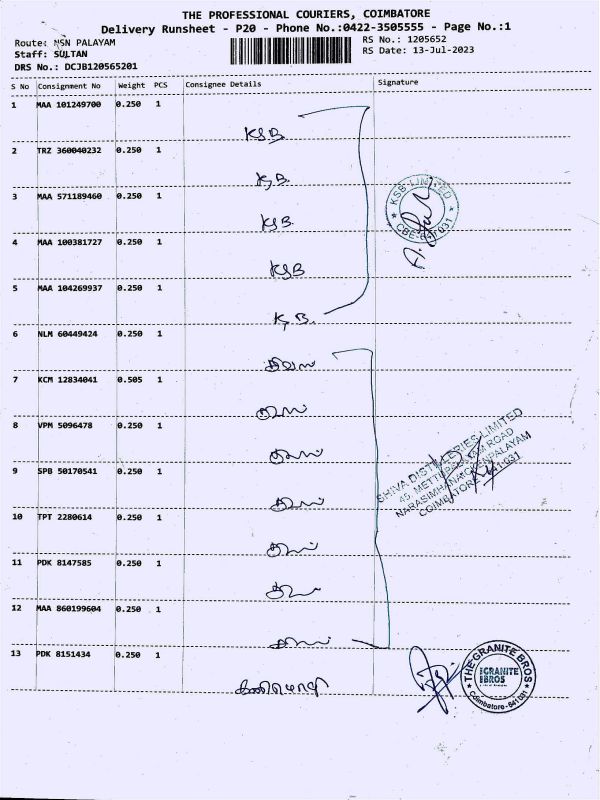 THE PROFESSIONAL COURIERS, COIMBATORE
Delivery Runsheet - P20 - Phone No.:0422-3505555 - Page No.:1
Route: NSN PALAYAM
RS No.: 1205652
Staff: SULTAN
RS Date: 13-Jul-2023
DRS No.: DCJB120565201
S No Consignment No Weight PCS Consignee Details Signature
1 MAA 101249700 0.250 1
KSB
2 TRZ 360040232 0.250 1
KSB
3 MAA 571189460 0.250 1
KSB
KSB LIMITED
CBE-641 031
4 MAA 100381727 0.250 1
KSB
5 MAA 104269937 0.250 1
KSB
6 NLM 60449424 0.250 1
7 KCM 12834041 0.505 1
8 VPM 5096478 0.250 1
SHIVA DISTILLERIES LIMITED
45, METTUPALAYAM ROAD
NARASIMHANAICKENPALAYAM
COIMBATORE - 641 031
9 SPB 50170541 0.250 1
10 TPT 2280614 0.250 1
11 PDK 8147585 0.250 1
12 MAA 860199604 0.250 1
13 PDK 8151434 0.250 1
THE GRANITE BROS
THE GRANITE
BROS
Coimbatore-641 031